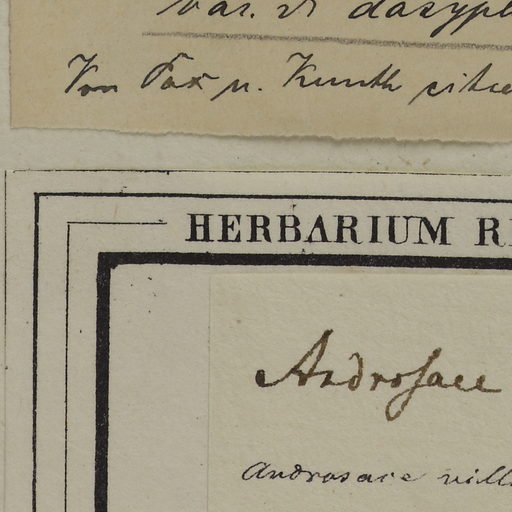 var. β dasyph
Von Pax u. Knuth citie
HERBARIUM R
Androsace
Androsace vill